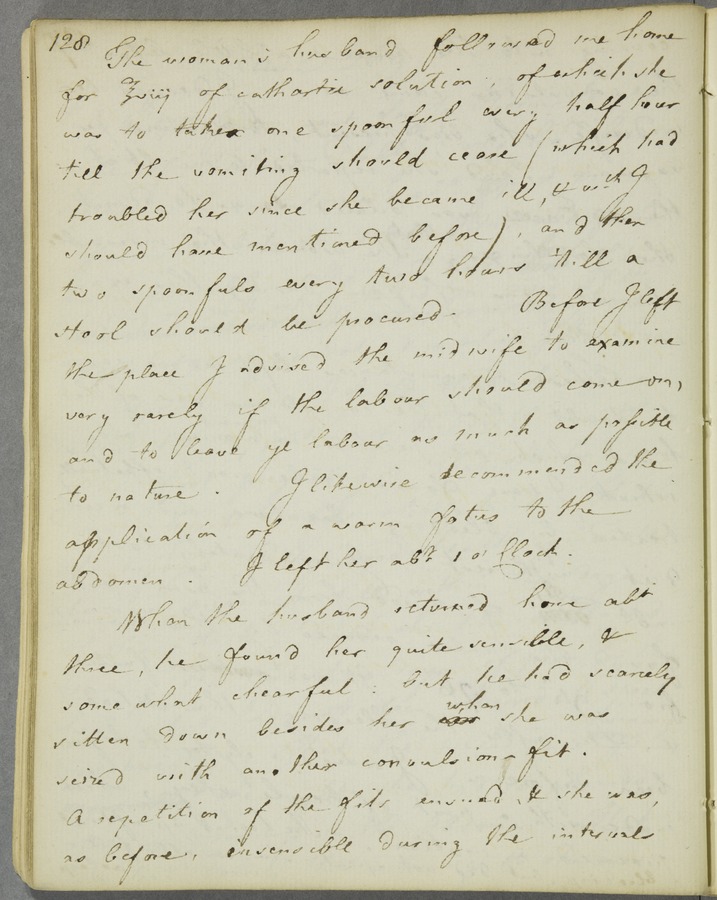 128
The woman's husband followed me home
for ʒviij of cathartic solution, of which she
was to take one spoonful every half hour
till the vomiting should cease (which had
troubled her since she became ill, & wch I
should have mentioned before), and then
two spoonfuls every two hours till a
stool should be procured. Before I left
the place I advised the midwife to examine
very rarely if the labour should come on,
and to leave ye labour as much as possible
to nature. I likewise recommended the
application of a warm fotus to the
abdomen. I left her abt 1 o'Clock.
When the husband returned home abt
three, he found her quite sensible, &
somewhat chearful: but he had scarcely
sitten down besides her when she was
seized with another convulsion-fit.
A repetition of the fits ensued, & she was,
as before, insensible during the intervals